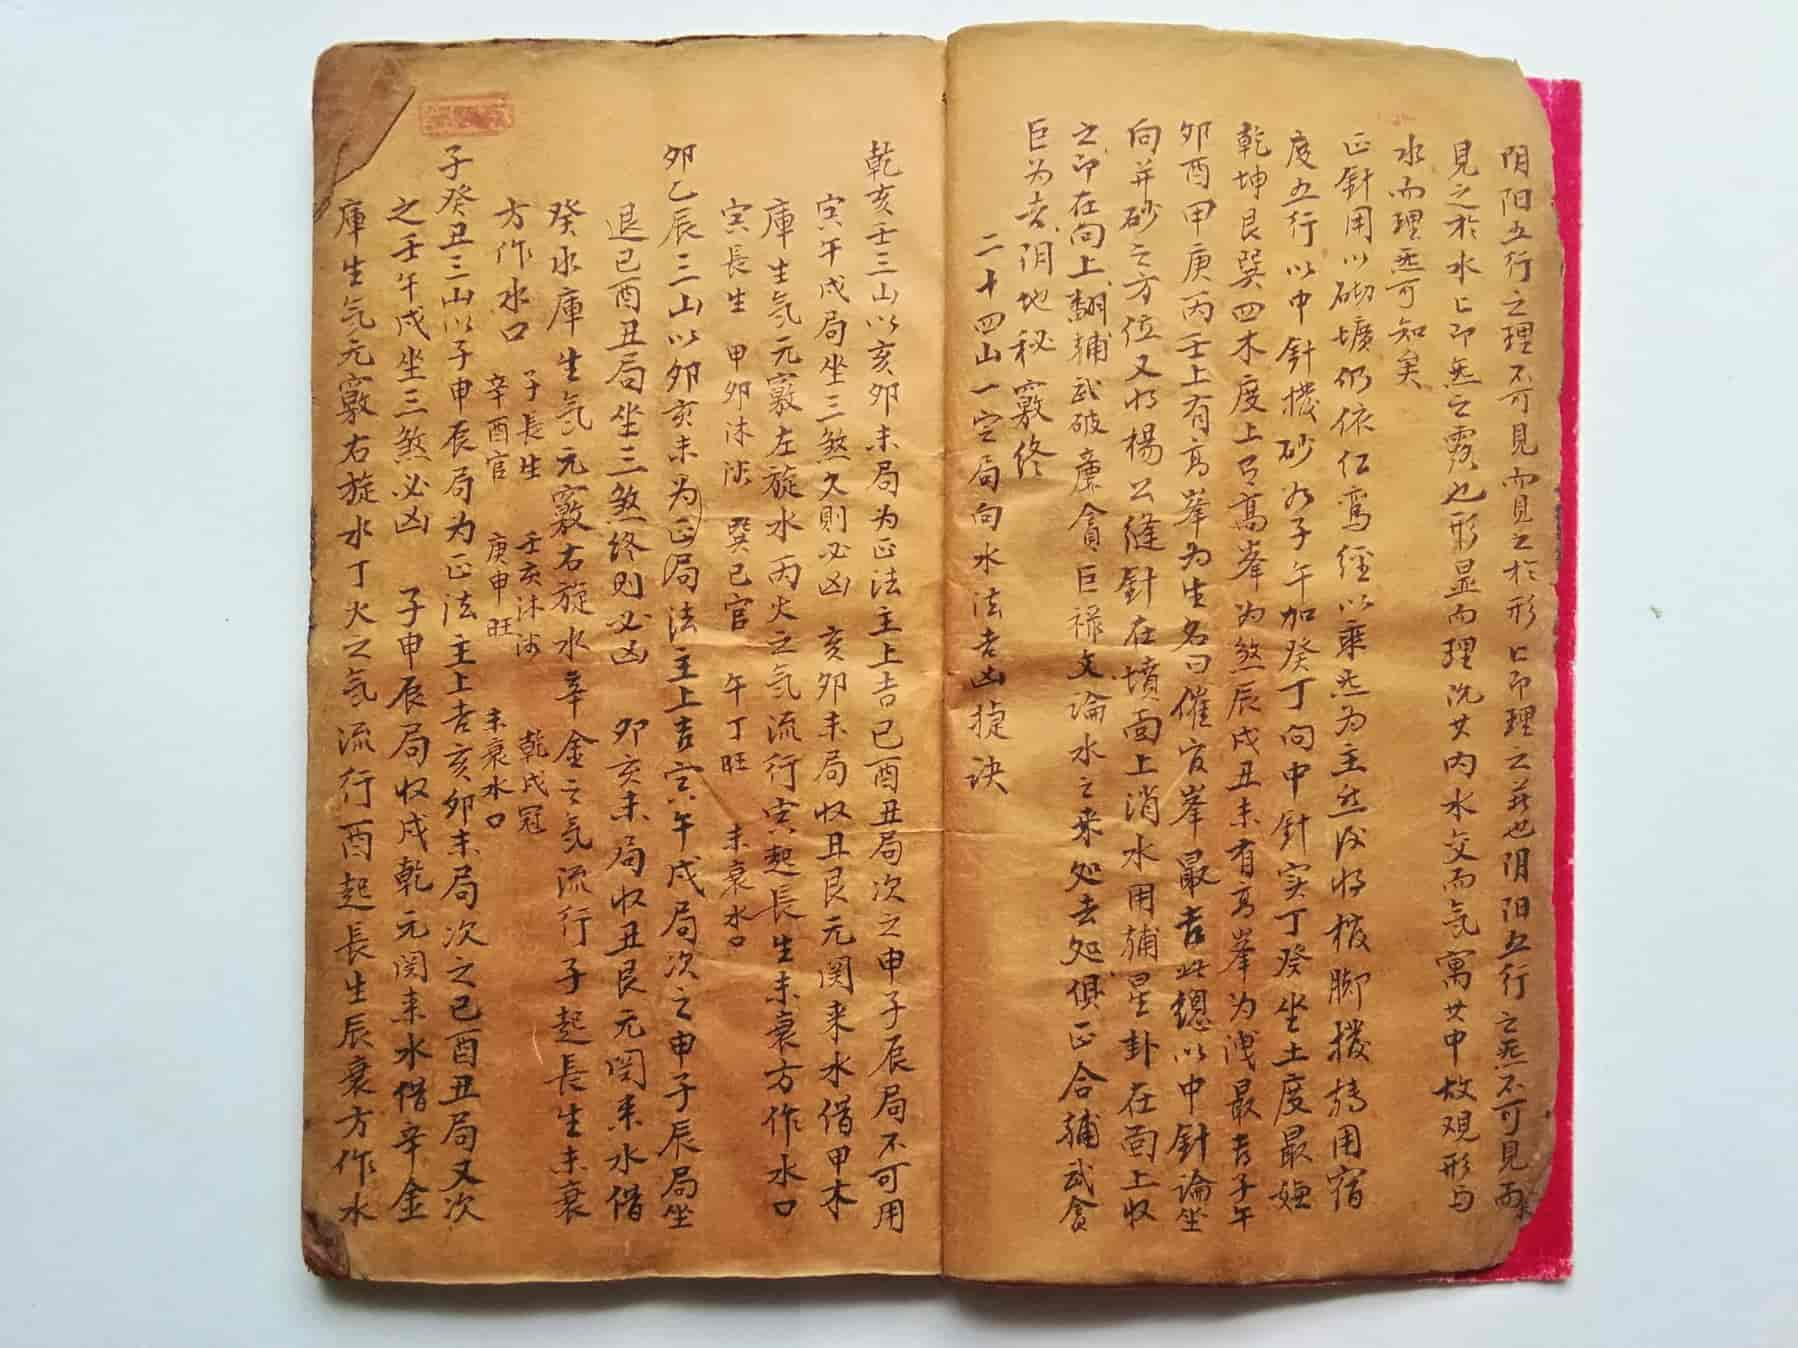 阴阳五行之理不可見而見之於形止即理之著也阴阳五行之炁不可見而
見之於水止即炁之露也形显而理流其内水交而气寓其中故观形与
水而理炁可知矣
正針用以砌壙仍依仁鸾經以乘炁为主然後将撥脚撥转用宿
度五行以中針撥砂如子午加癸丁向中針实丁癸坐土度最嫌
乾坤艮巽四木度上有高峯为煞辰戌丑未有高峯为洩最吉子午
卯酉甲庚丙壬上有高峯为生名曰催官峯最吉此總以中針論坐
向并砂之方位又将楊公缝針在墳面上消水用辅星卦在面上收
之即在向上翻辅武破廉貪巨禄文論水之来处去处俱正合辅武貪
巨为吉阴地秘竅终
二十四山一定局向水法吉凶捷诀
乾亥壬三山以亥卯未局为正法主上吉巳酉丑局次之申子辰局不可用
寅午戌局坐三煞久則必凶 亥卯未局收丑艮元関来水借甲木
庫生气元竅左旋水丙火之气流行寅起長生未衰方作水口
寅長生 甲卯沐浴 巽巳官 午丁旺 未衰水口
卯乙辰三山以卯亥未为正局法主上吉寅午戌局次之申子辰局坐
退巳酉丑局坐三煞终則必凶 卯亥未局收丑艮元関来水借
癸水庫生气元竅右旋水辛金之气流行子起長生未衰
方作水口 子長生 壬亥沐浴 乾戌冠
辛酉官 庚申旺 未衰水口
子癸丑三山以子申辰局为正法主上吉亥卯未局次之巳酉丑局又次
之壬午戌坐三煞必凶 子申辰局收戌乾元関来水借辛金
庫生气元竅右旋水丁火之气流行酉起長生辰衰方作水